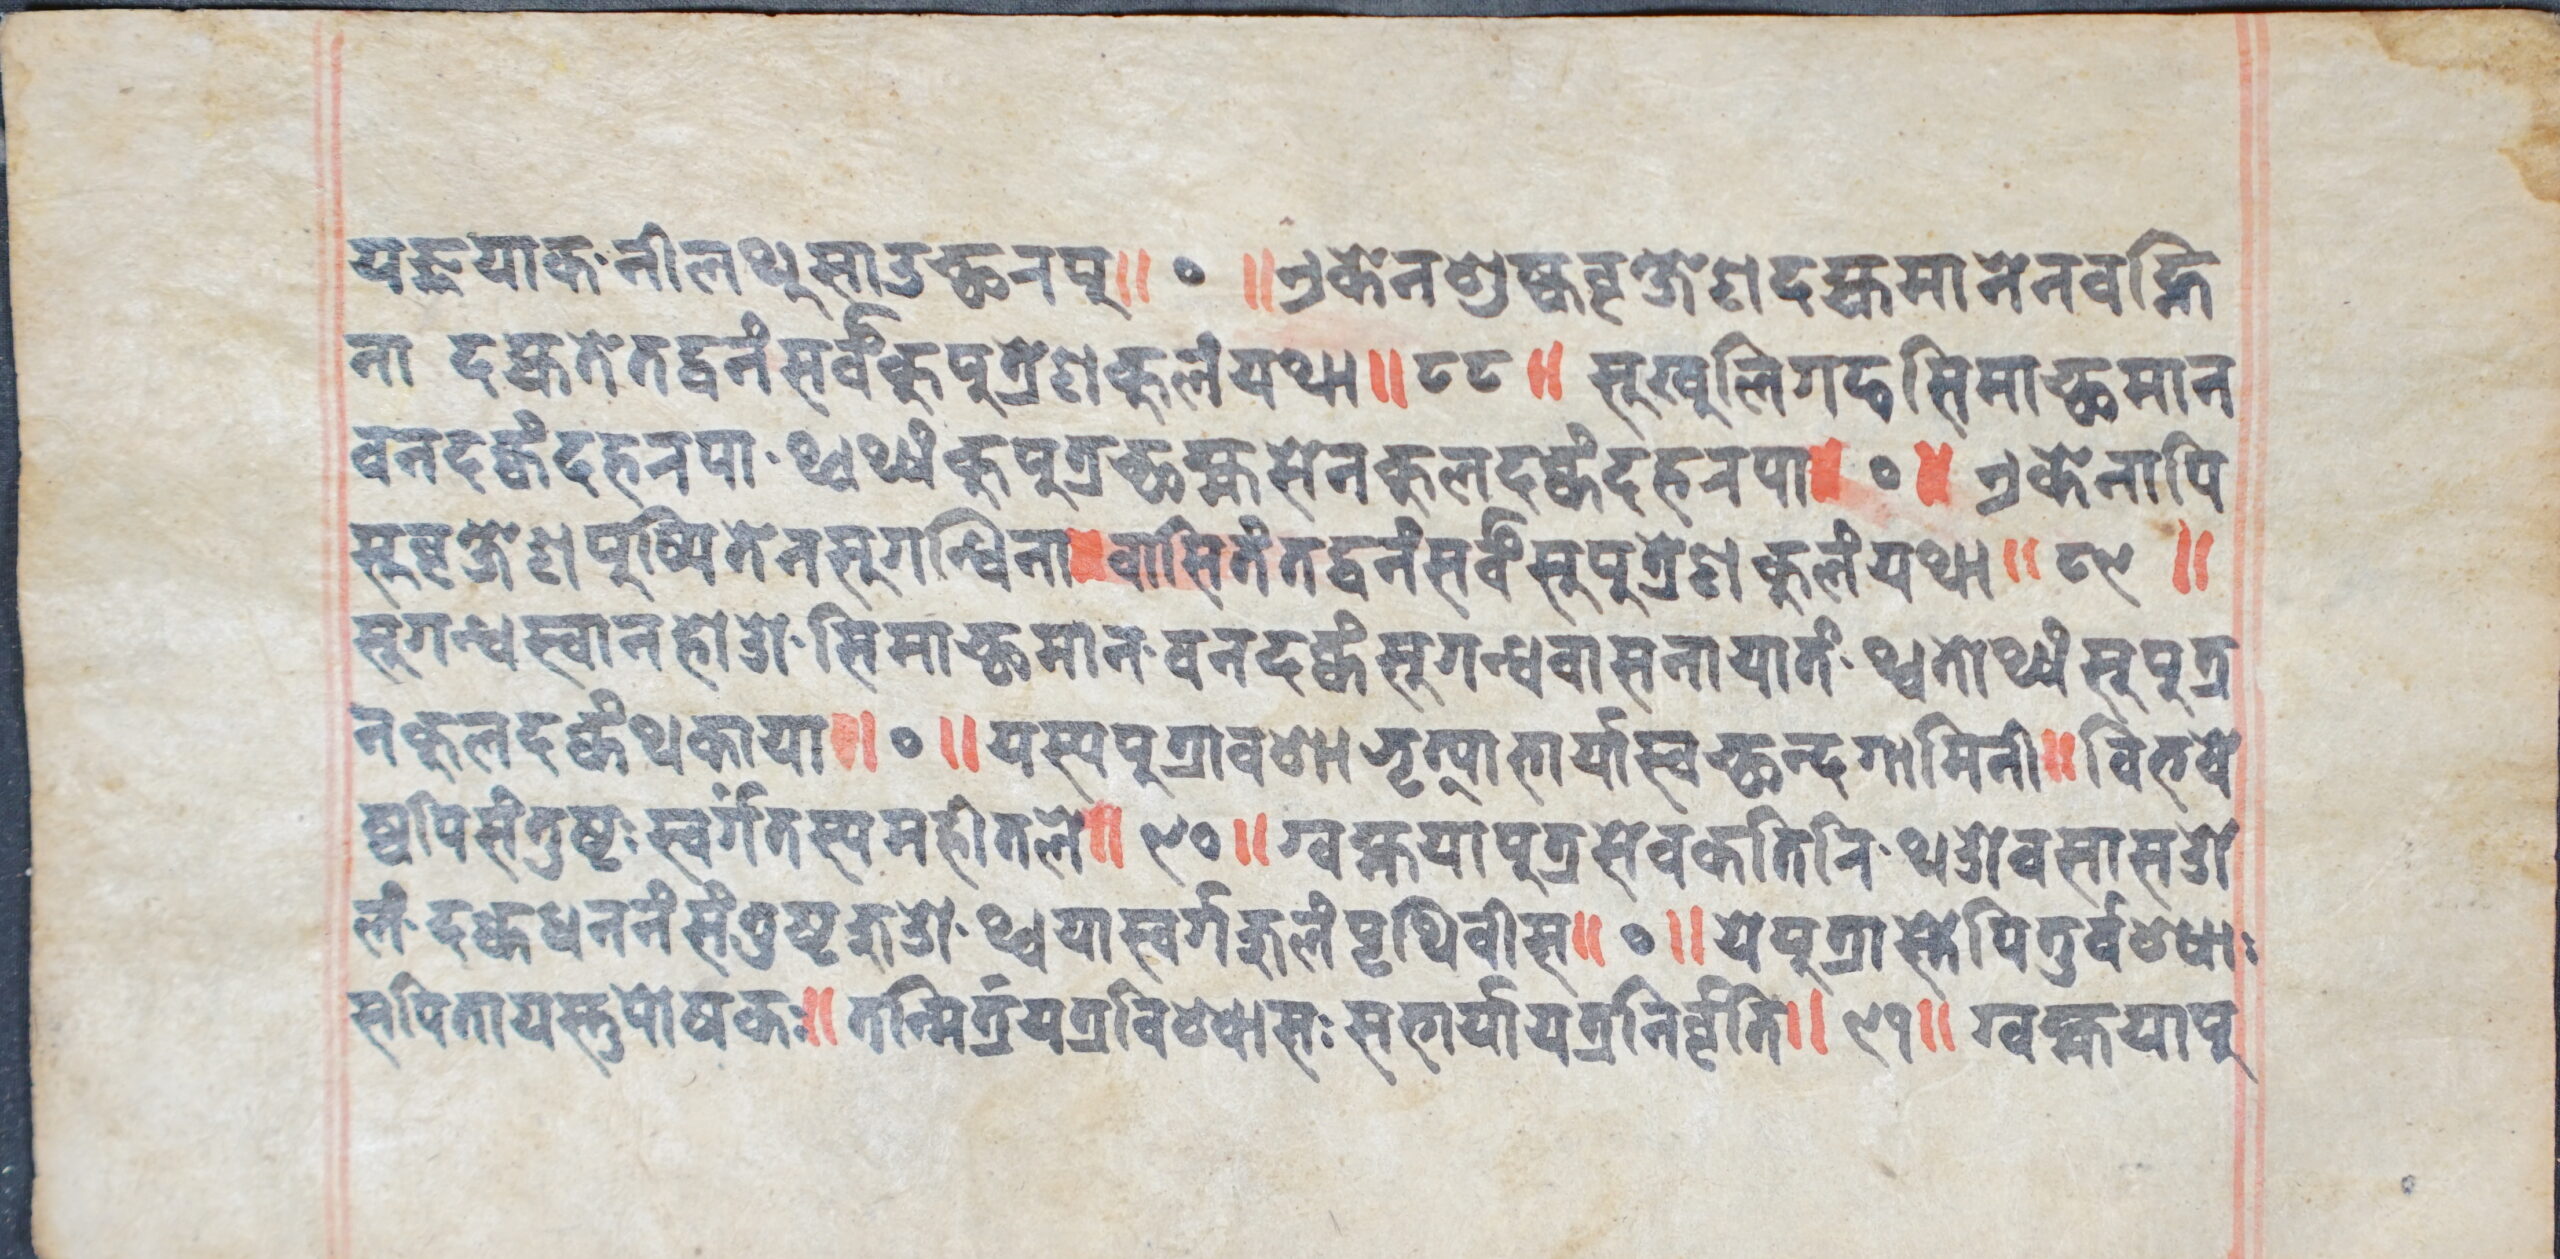 यङ्गुयाक·नीलथुसाउछनपु॥ ० ॥एकेनशुष्कवृक्षेणदह्यमानेनवह्नि
ना दह्यतेतद्वनंसर्वंकुपुत्रेणकुलंयथा॥८८॥ सुखुलिगछसिमाछमान
वनदक्वंदहनपा·थ्वथ्यंकुपुत्रछह्मसेनकुलदक्वंदहनपा॥०॥ एकेनापि
सुवृक्षेणपुष्पितेनसुगन्धिना॥वासितंतद्वनंसर्वंसुपुत्रेणकुलंयथा॥८९॥
सुगन्धस्वानहोङो·सिमाछमान·वनदक्वंसुगन्धवासनायातं·थ्वतोथ्यंसुपुत्र
नकुलदक्वंथकाया॥०॥यस्यपुत्रावशाभृत्याभार्यास्वछन्दगामिनी॥विभवे
ष्वपिसंतुष्टःस्वर्गंतस्यमहीतले॥९०॥ग्वह्मयापुत्रसेवकतिनि·थङोवसासङो
लं·दक्वधननंसंतुष्टजुङो·थ्वयास्वर्गजुलंपृथिवीस॥०॥येपुत्रास्तेपितुर्वश्याः
सपितायस्तुपोषकः॥तन्मित्रंयत्रविश्वासःसभार्यायत्रनिर्वृति॥९१॥ग्वह्मयापु